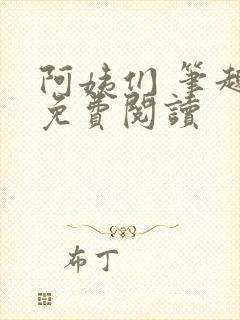 阿姨们 笔趣
免費閱讀
布丁